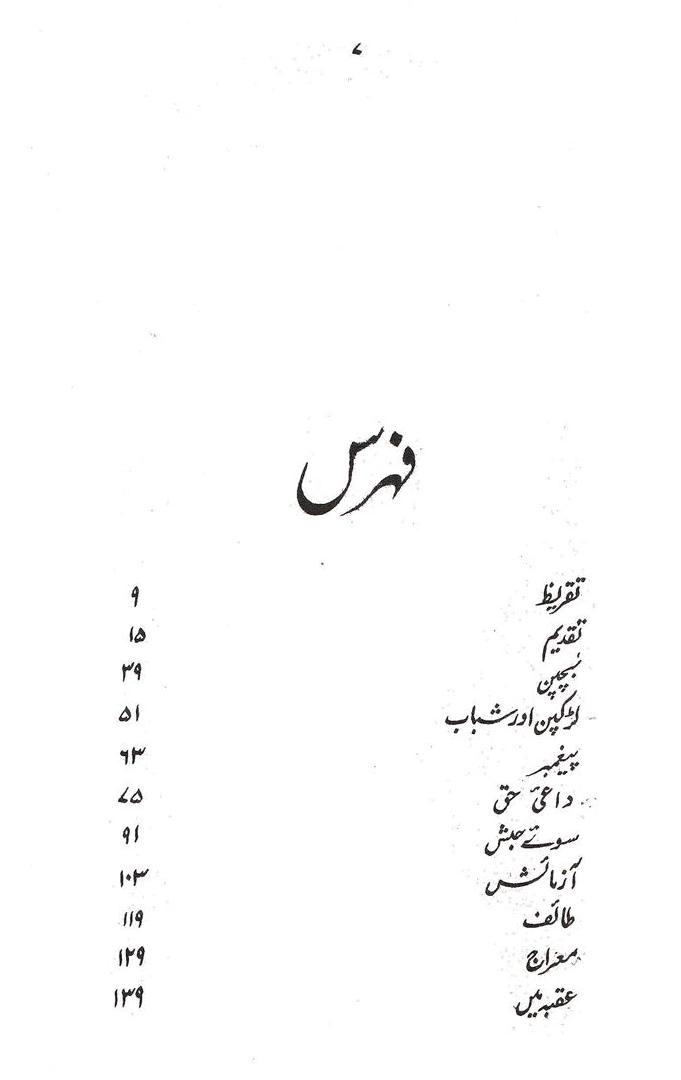 ۷
فہرس
تقریظ ۹
تقدیم ۱۵
بچپن ۳۹
لڑکپن اور شباب ۵۱
پیغمبر ۶۳
داعیٔ حق ۷۵
سوئے حبش ۹۱
آزمائش ۱۰۳
طائف ۱۱۹
معراج ۱۲۹
عقبہ میں ۱۳۹